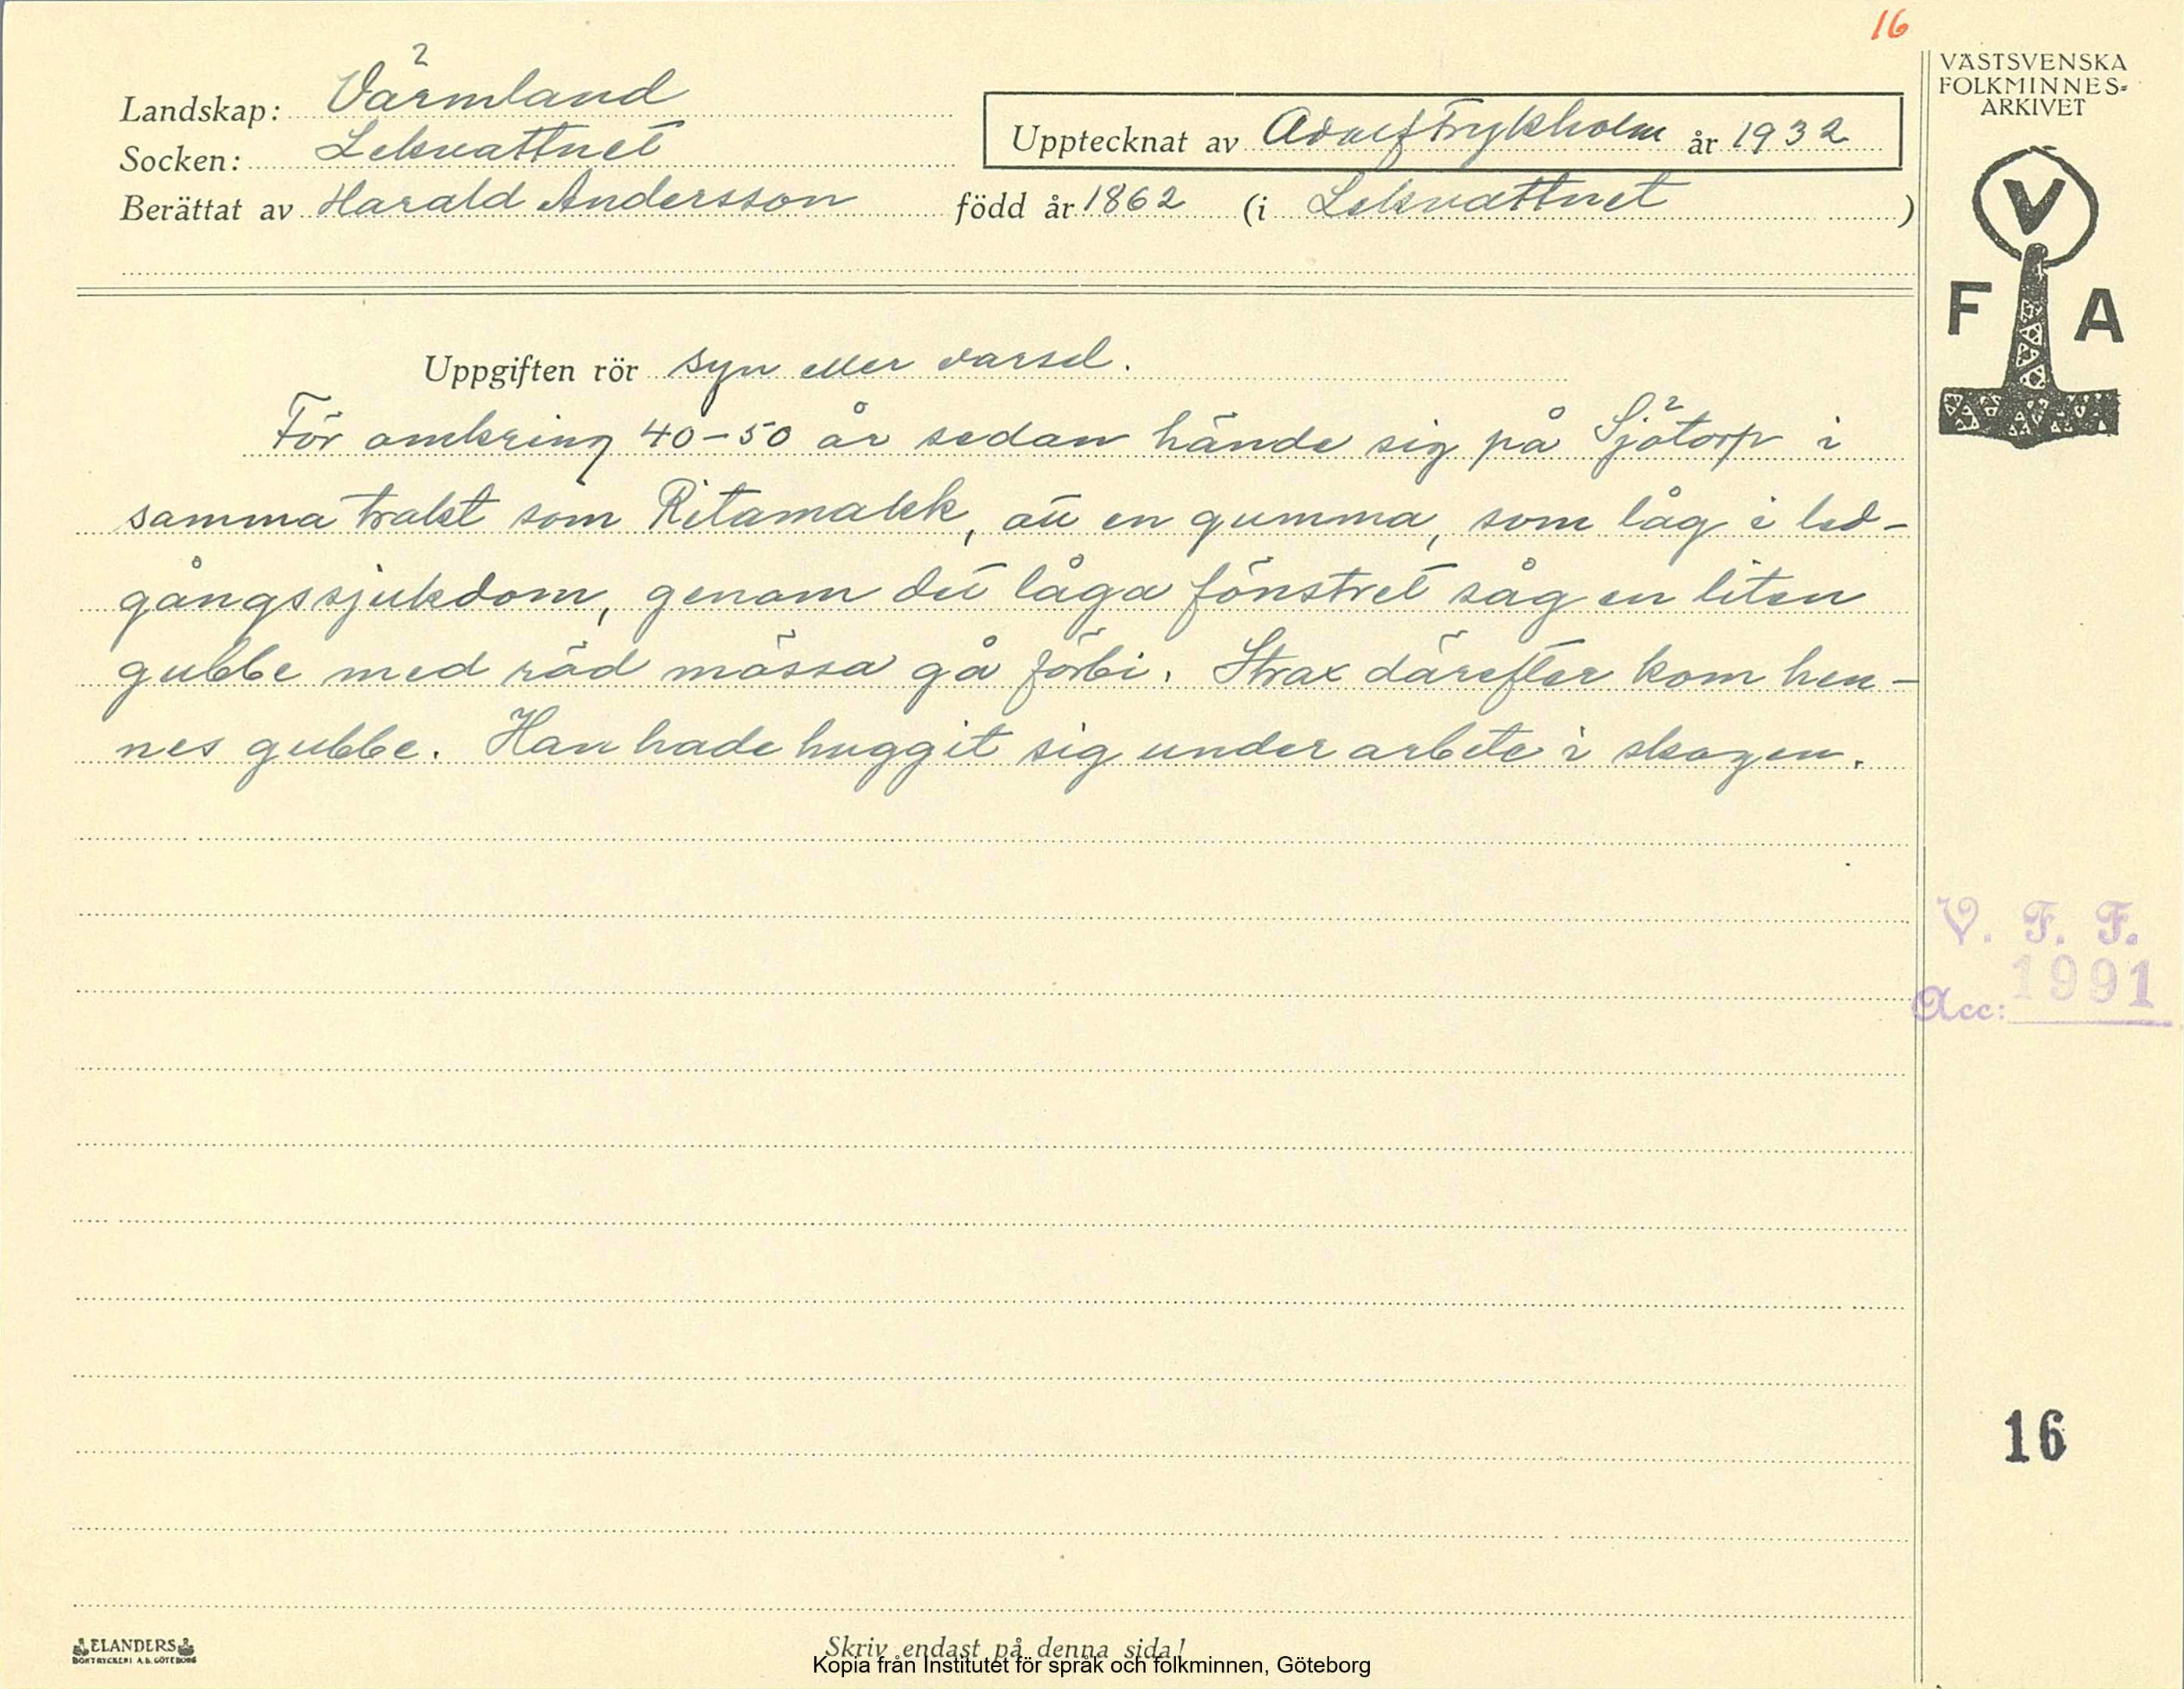 16
VÄSTSVENSKA
FOLKMINNES-
ARKIVET
Landskap: Värmland
Socken: Lekvattnet
Upptecknat av Adolf Frykholm år 1932
Berättat av Harald Andersson född år 1862 (i Lekvattnet )
V
F A
Uppgiften rör syn eller varsel.
För omkring 40-50 år sedan hände sig på Sjötorp i
samma trakt som Ritamakk, att en gumma, som låg i led-
gångssjukdom, genom det låga fönstret såg en liten
gubbe med röd mössa gå förbi. Strax därefter kom hen-
nes gubbe. Han hade huggit sig under arbete i skogen.
V. F. F.
Acc: 1991
16
ELANDERS
BOKTRYCKERI A.B. GÖTEBORG
Skriv endast på denna sida!
Kopia från Institutet för språk och folkminnen, Göteborg